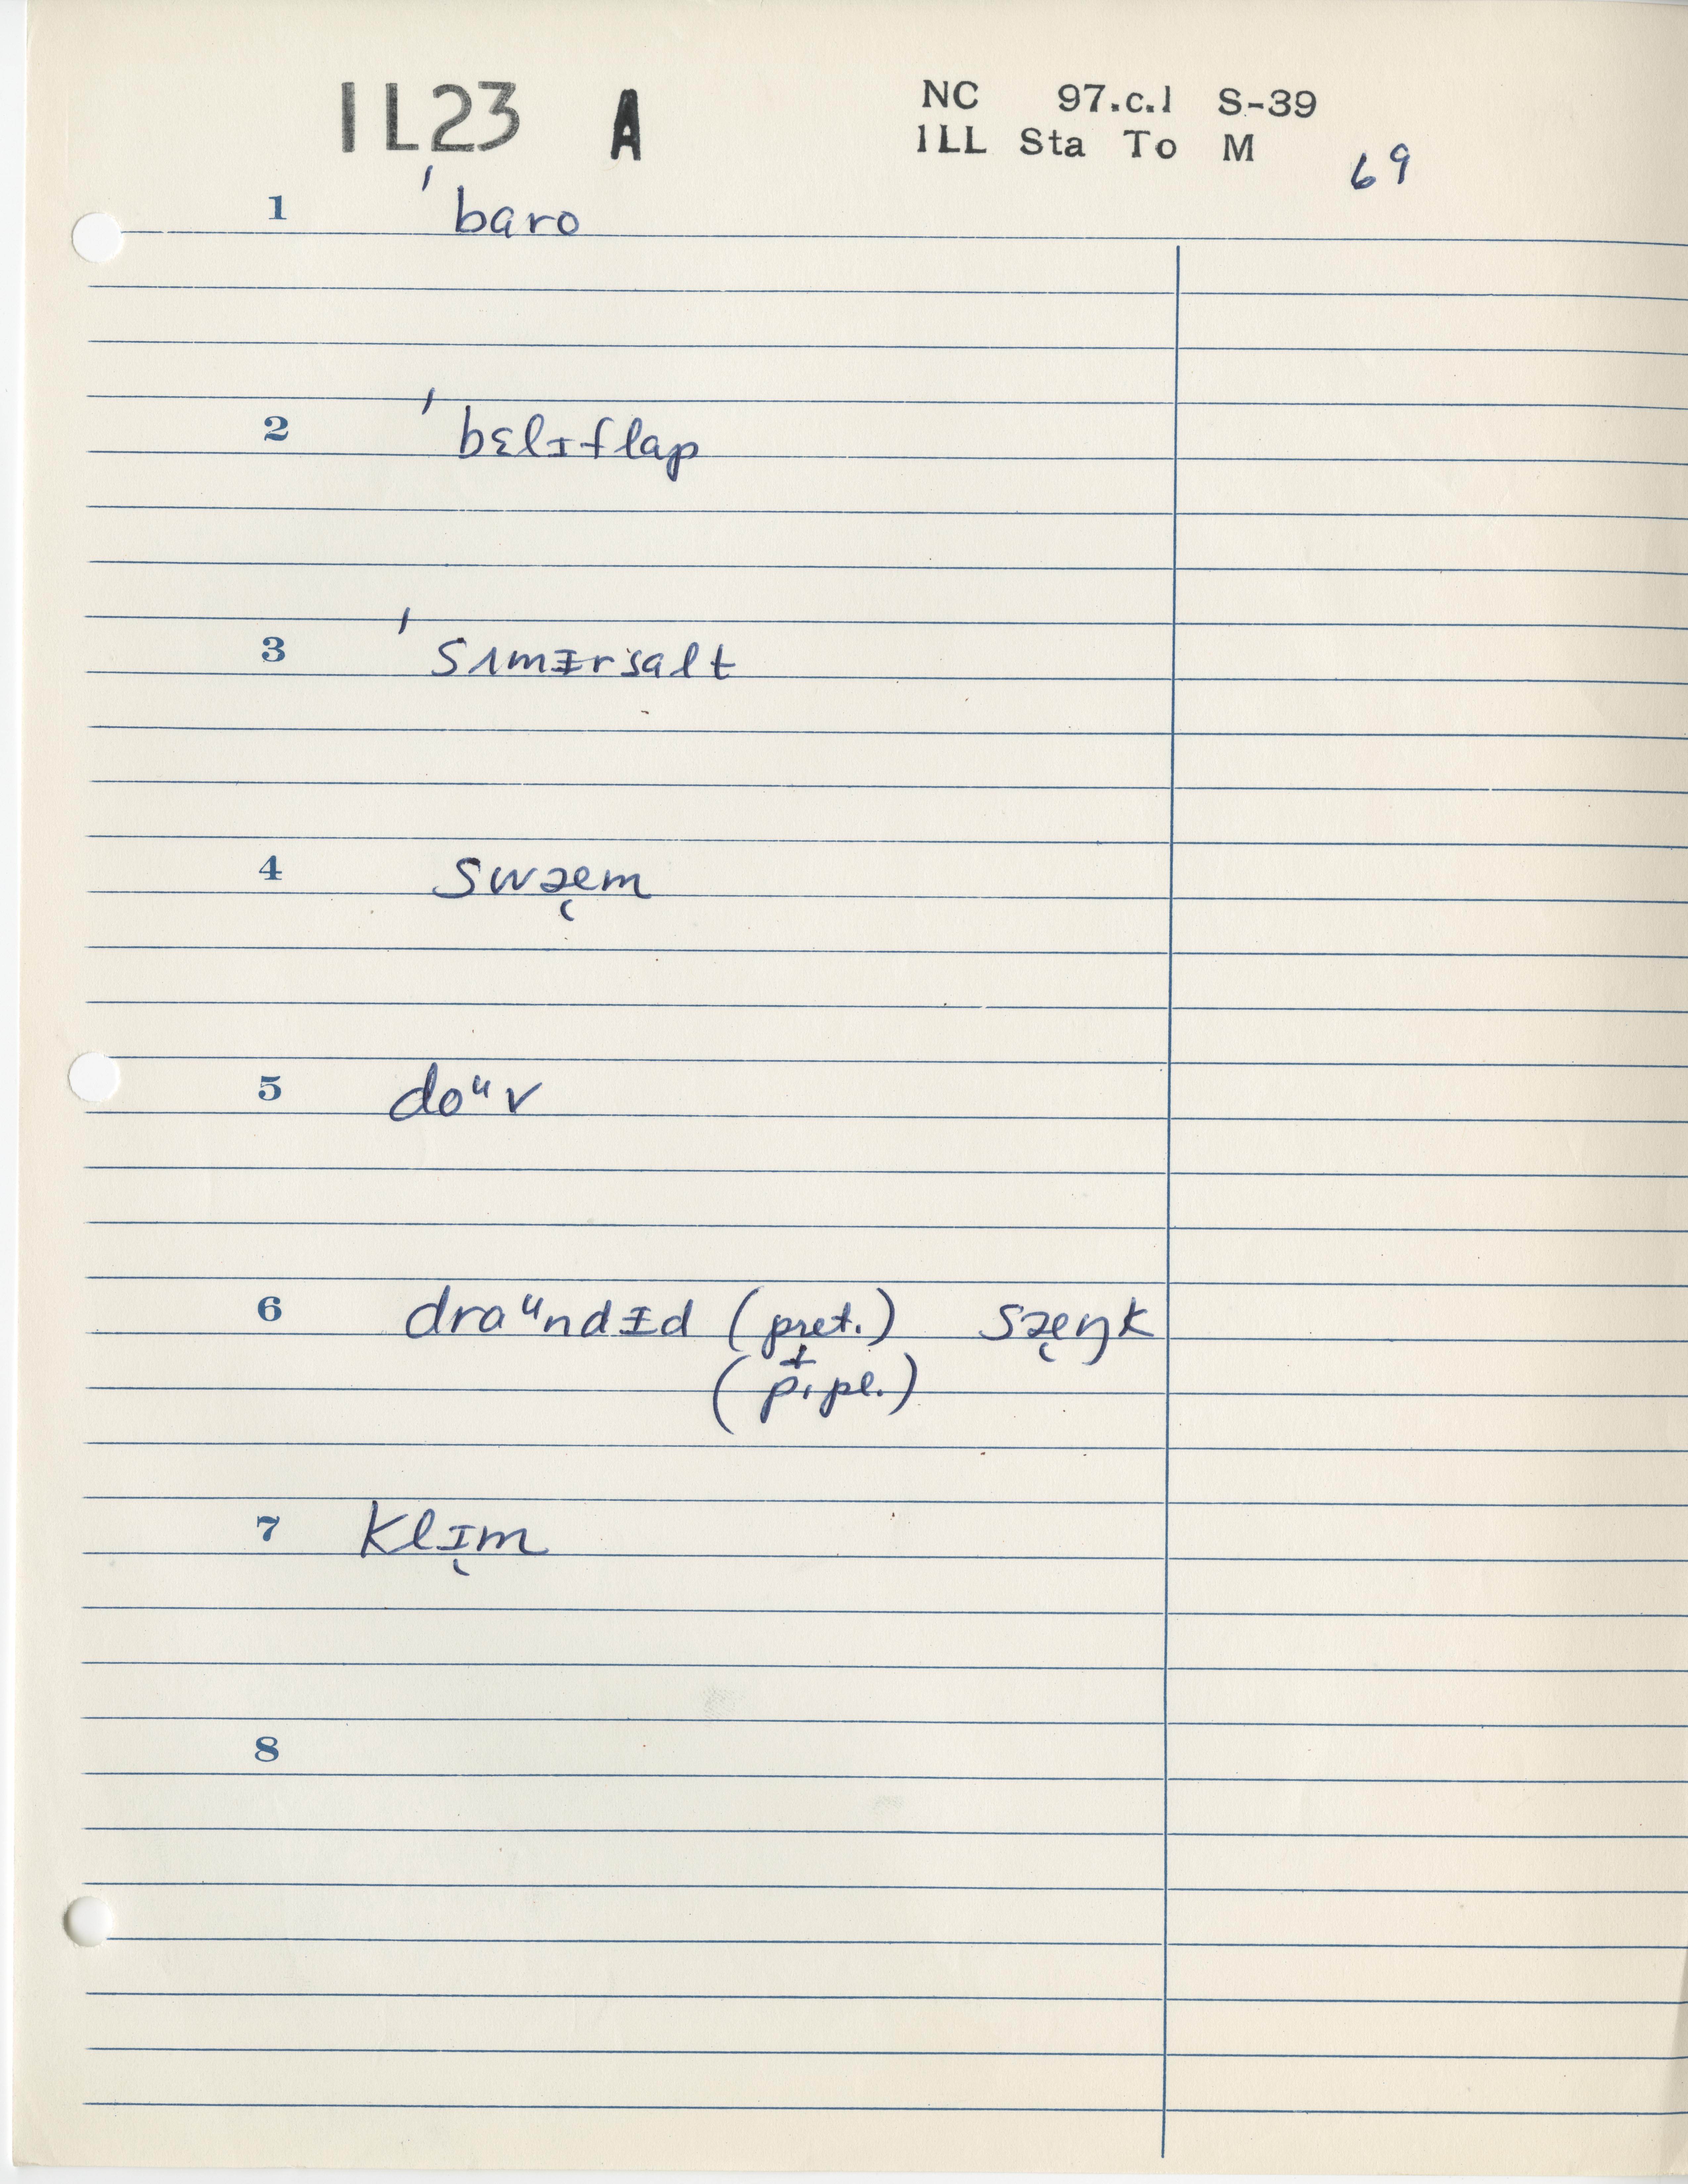 IL23 A NC 97.c.1 S-39
ILL Sta To M 69
1 ˈbaro
2 ˈbɛlɪflap
3 ˈsʌmᵻrˌsalt
4 swæ̜m
5 doᵘv
6 draᵘndᵻd (pret.) sæ̜ŋk
+
(p.pl.)
7 klɪ̜m
8